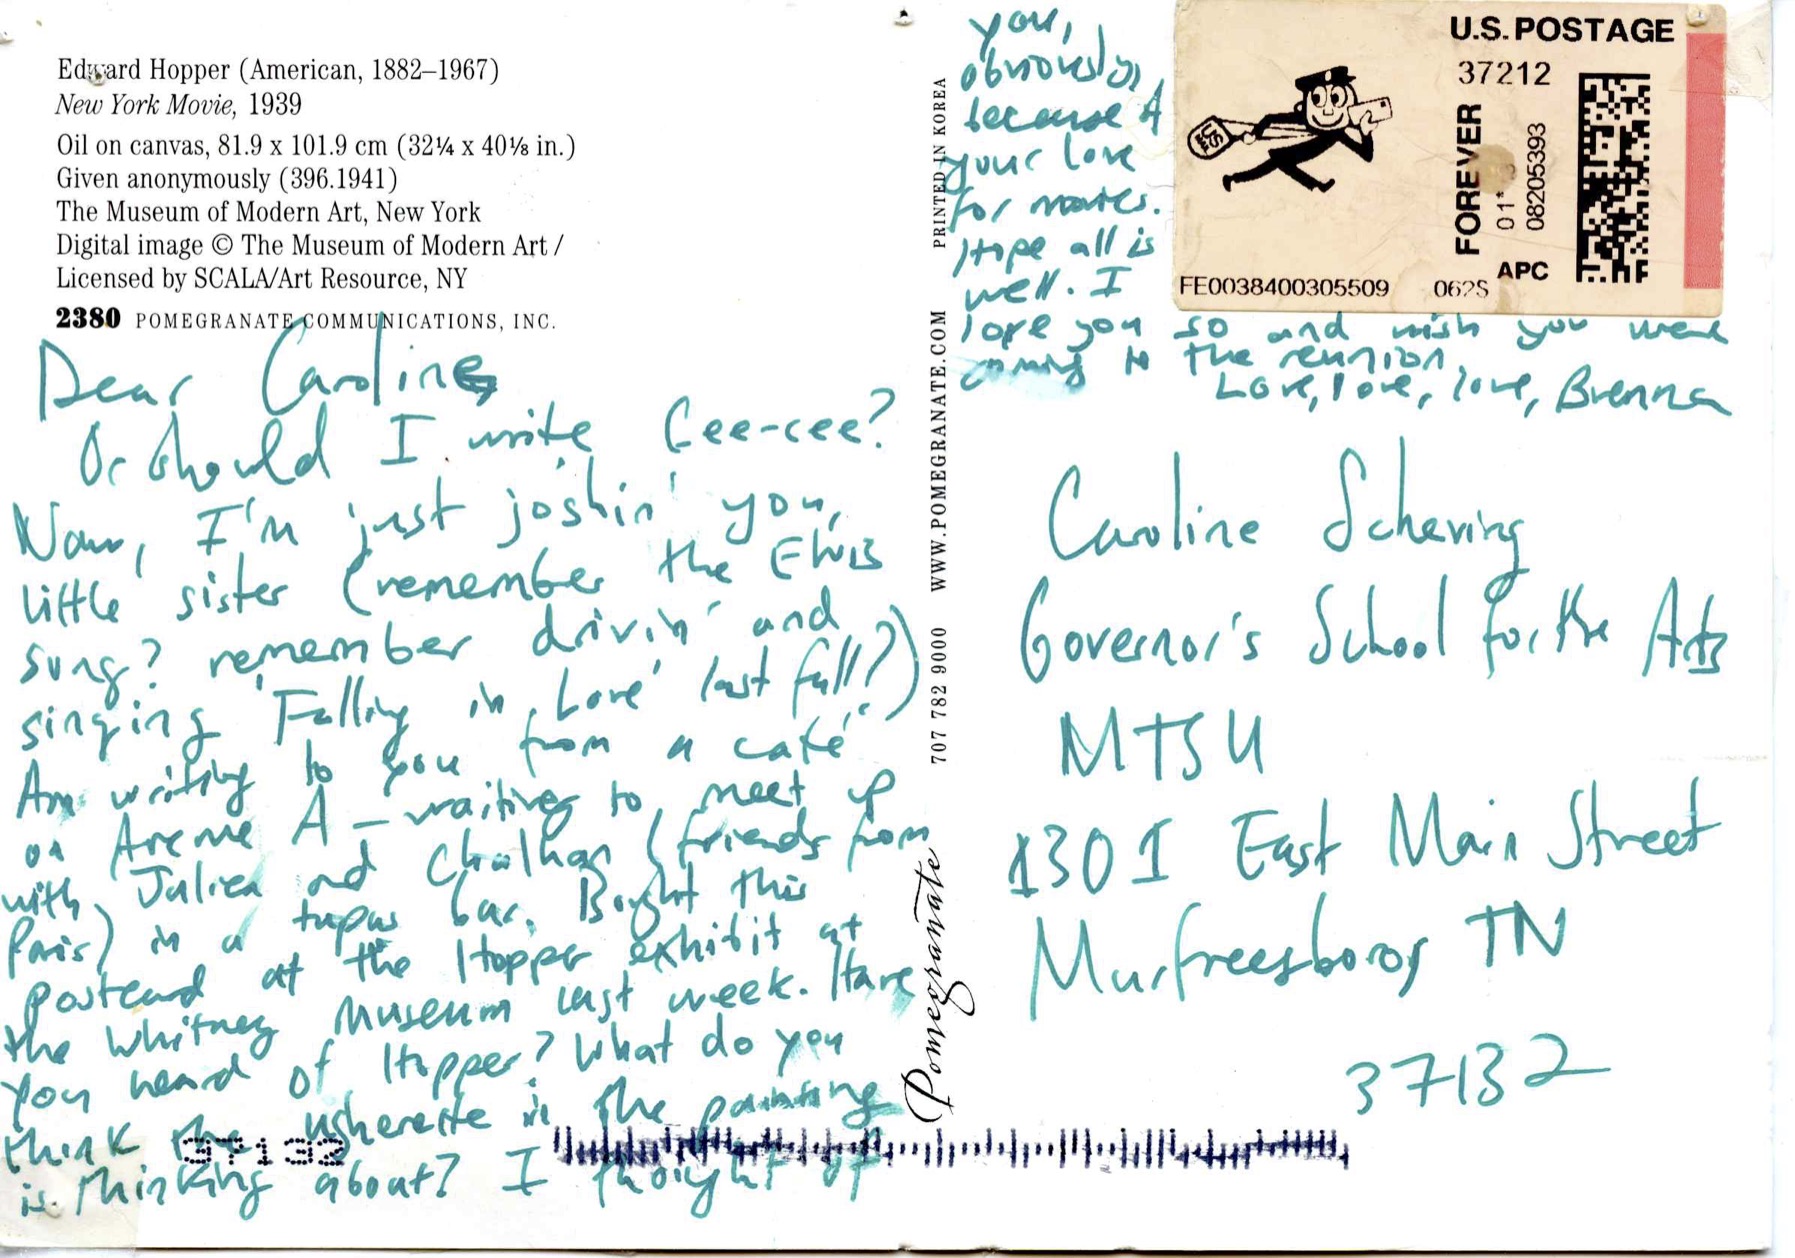 Edward Hopper (American, 1882–1967)
New York Movie, 1939
Oil on canvas, 81.9 x 101.9 cm (32¼ x 40⅛ in.)
Given anonymously (396.1941)
The Museum of Modern Art, New York
Digital image © The Museum of Modern Art /
Licensed by SCALA/Art Resource, NY
2380 POMEGRANATE COMMUNICATIONS, INC.
Dear Caroline,
Or should I write Cee-cee?
Naw, I'm just joshin' you,
little sister (remember the Elvis
song? remember drivin' and
singing 'Falling in Love' last fall?)
Am writing to you from a café
on Avenue A – waiting to meet up
with Julien and (friends from
Paris) in a tapas bar. Bought this
postcard at the Hopper exhibit at
the Whitney Museum last week. Have
you heard of Hopper? What do you
think the usherette in the painting
is thinking about? I thought of
37132
you,
obviously,
because of
your love
for movies.
Hope all is
well. I
love you so and wish you were
coming to the reunion.
Love, love, love, Brenna
707 782 9000 WWW.POMEGRANATE.COM PRINTED IN KOREA
Pomegranate
U.S. POSTAGE
37212
FOREVER
01*
08205393
APC
FE0038400305509 062S
Caroline Schering
Governor's School for the Arts
MTSU
1301 East Main Street
Murfreesboro, TN
37132